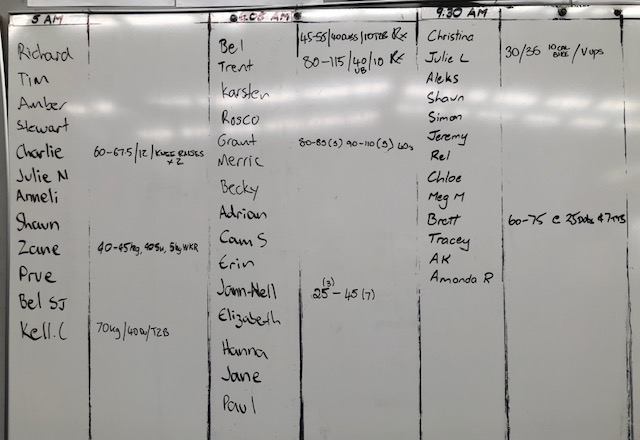 5 AM
Richard
Tim
Amber
Stewart
Charlie 60-67.5/12/KNEE RAISES x2
Julie N
Anneli
Shaun
Zane 40-45kg, 40su, 5kg WKR
Prue
Bel SJ
Kell.C 70kg/40Du/T2B
6.05 AM
Bel 45-55/40DUs/10T2B Rx
Trent 80-115/40/10 Rx
UB
Karsten
Rosco
Grant 80-85(5) 90-110(5)
Merric
Becky
Adrian
Cam S
Erin
Jann-Nell 25(3) - 45(7)
Elizabeth
Hanna
Jane
Paul
9.30 AM
Christina
Julie L 30/35 10 CAL BIKE /V ups
Aleks
Shaun
Simon
Jeremy
Rel
Chloe
Meg M
Brett 60-75 @ 25 Dubs & 7
Tracey
AK
Amanda R